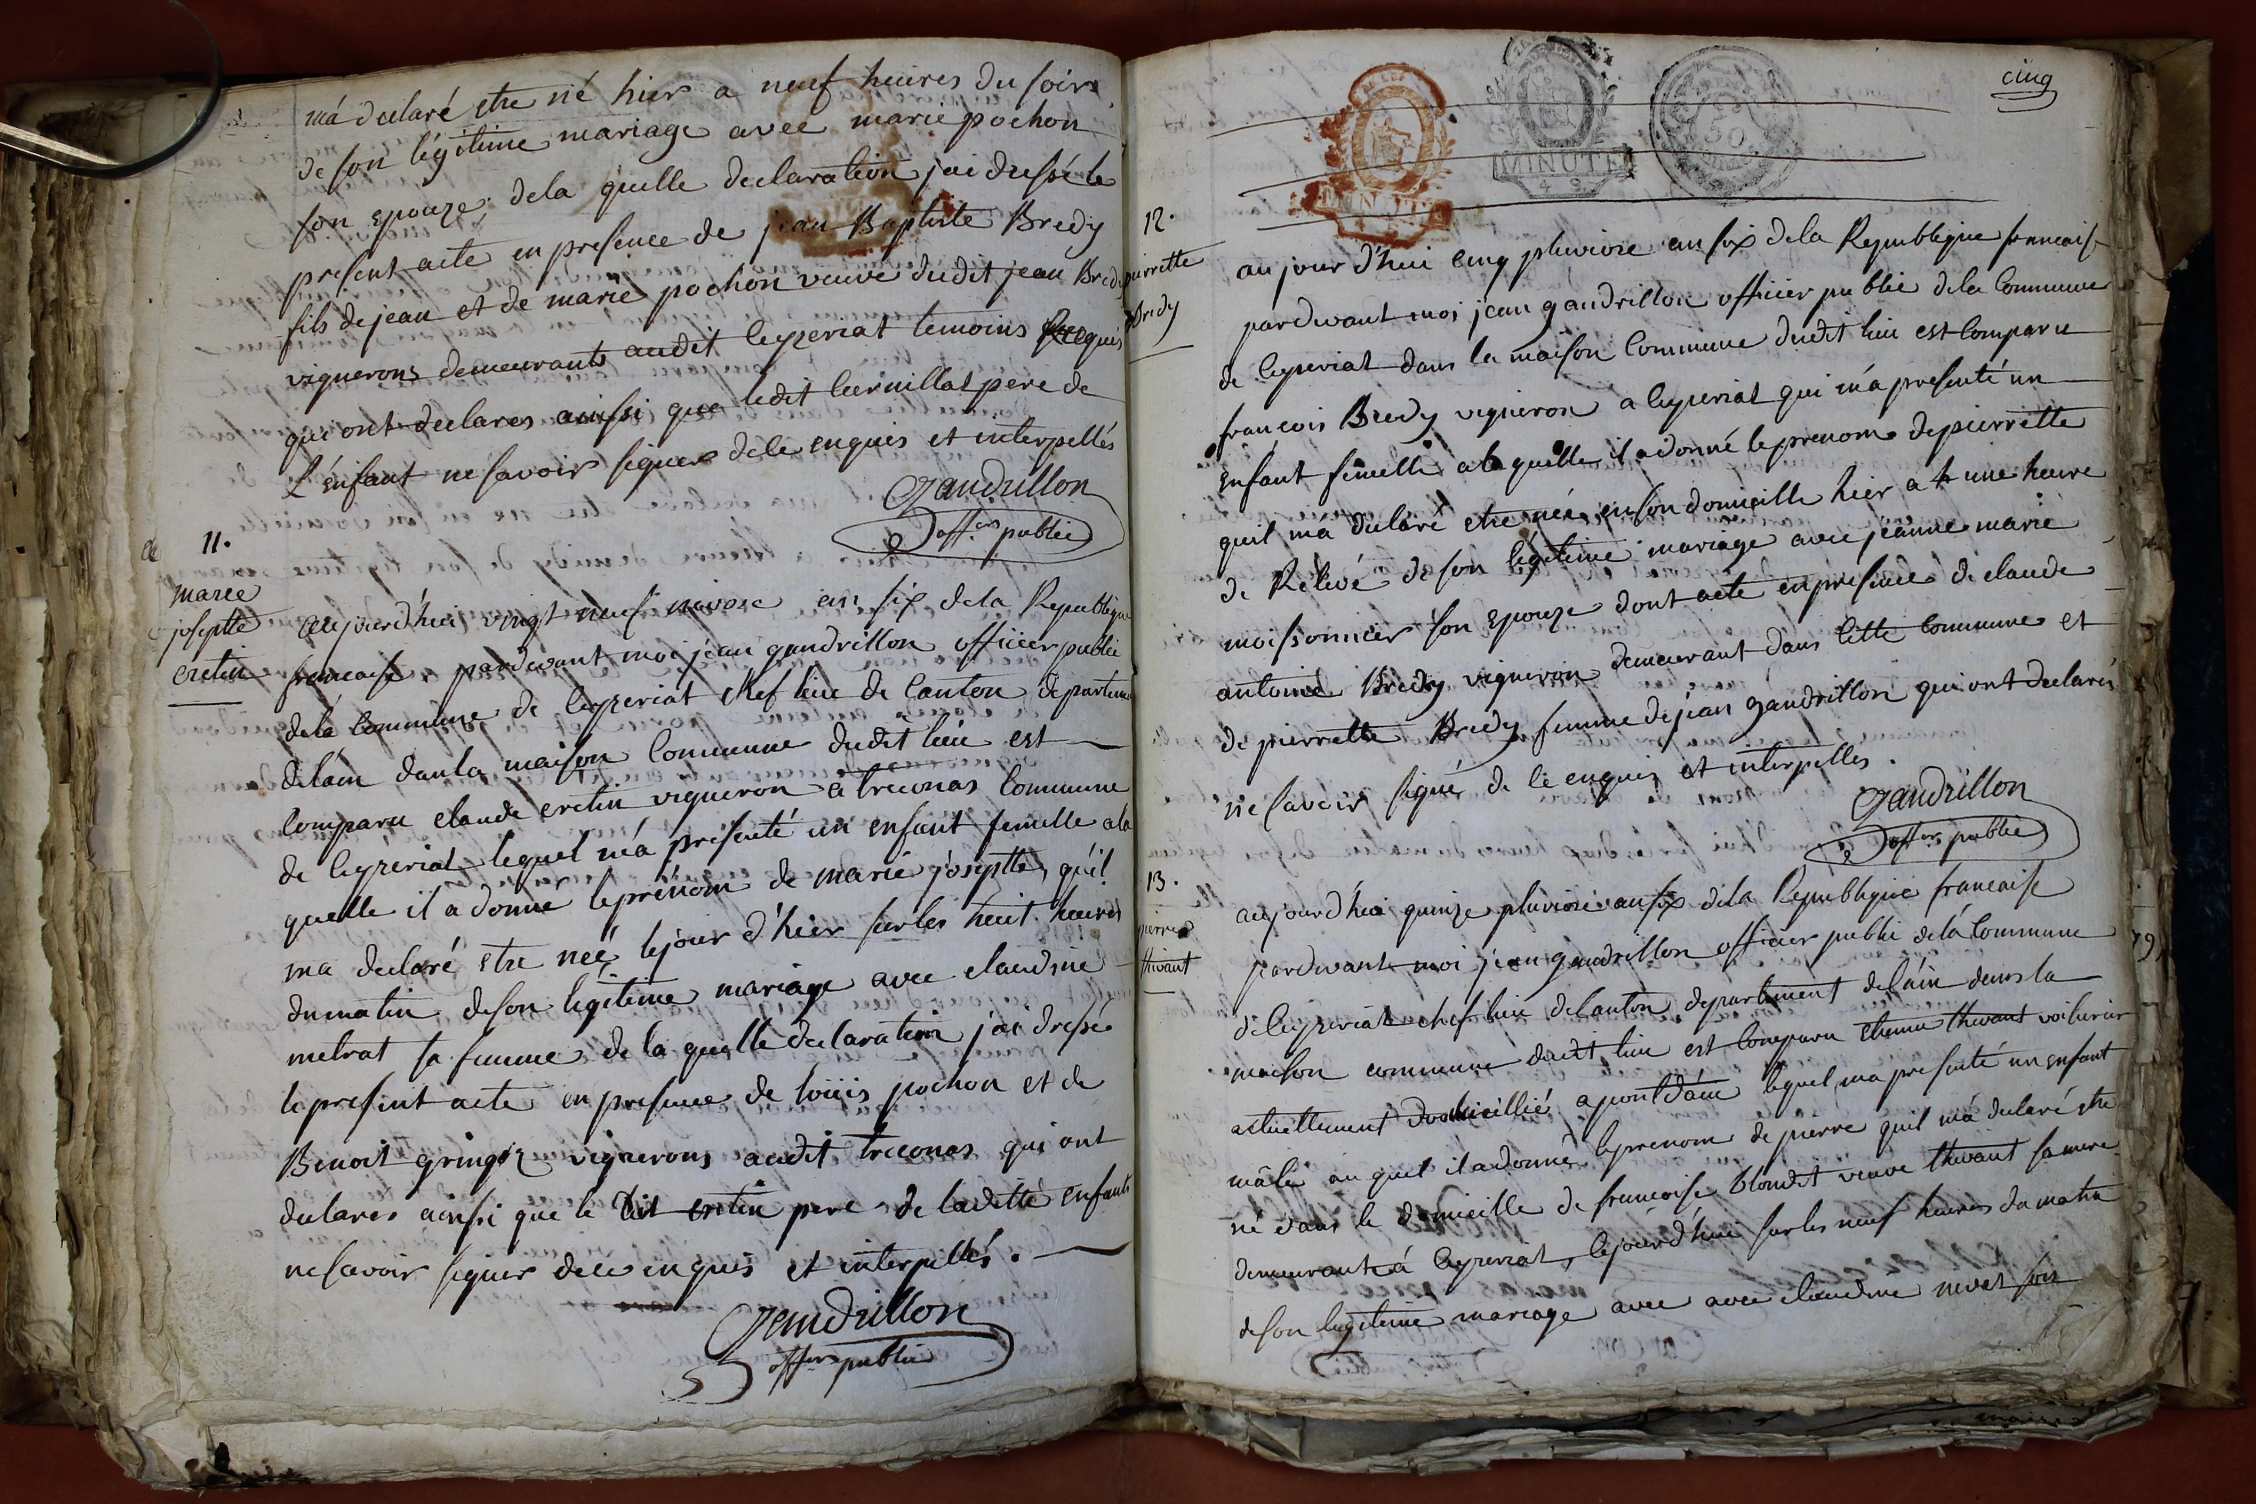 má declaré etre né hier a neuf heures du soir
de son légitime mariage avec marie pochon
son epouze dela quelle declaration jai dressé le
present acte en presence de jean Baptiste Bredy
fils de jean et de marie pochon veuve dudit jean Bredy
vignerons demeurants audit Ceyzeriat temoins Requis
qui ont declares ainssi que ledit pere de
L'énfant ne savoir signer dele enquis et interpellés
Gandrillon
offer public
11.
marie
josephte
cretin
aujourd'huy vingt neuf nivose an six dela Republique
francaise pardevant moi jean gandrillon officier public
delá Commune de Ceyzeriat chef lieu de Canton departement
delain dans la maison Commune dudit lieu est
Comparu claude cretin vigneron a treconas Commune
de Ceyzeriat lequel má presenté un enfant femelle ala
quelle il a donné leprénom de marie josephte, qu'il
ma declaré etre neé le jour d'hier sur les huit heures
dumatin deson legitime mariage avec claudine
metrat sa femme de la quelle declaration jai dressé
le present acte en presence de loüis pochon et de
Benoit gringoz vignerons audit treconas qui ont
declares ainssi que le dit cretin pere de ladette enfant
ne savoir signer dele enquis et interpellés.
Gandrillon
offer public
cinq
MINUTE
MINUTE
4 S
50
12.
pierrette
Bredy
aujourd'hui cinq pluviose an six dela Republique francaise
pardevant moi jean gandrillon officier public dela Commune
de Ceyzeriat dans la maison Commune dudit lieu est Comparu
francois Bredy vigneron a Ceyzeriat qui má presenté un
enfant femelle a la quelle il a donné le prenom de pierrette
quil má declaré etre née en son domicille hier a une heure
de Relevé de son légitime mariage avec jeanne marie
moissonnier son epouze dont acte en presence de claude
antoine Bredy vigneron demeurant dans Cette Commune et
de pierrette Bredy femme de jean gandrillon qui ont declarés
ne savoir signé de ce enquis et interpellés.
Gandrillon
offer public
13.
pierre
thivant
aujourd'hui quinze pluviose an six dela Republique francaise
pardevant moi jean gandrillon officier public delá Commune
de Ceyzeriat chef lieu de Canton departement de lain dans la
maison commune dudit lieu est Comparu etienne thivant voiturier
actuellement domicillié a pont dáin lequel ma presenté un enfant
mâle au quel il a donné le prenom de pierre quil má declaré etre
né dans le domicille de francoise blondet veuve thivant sa mere
demeurante á Ceyzeriat, le jourd'hui sur les neuf heures du matin
deson legitime mariage avec avec claudine nivet son